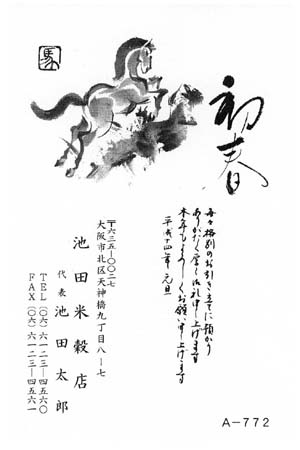 初春
毎々格別のお引き立てに預かり
ありがたく厚く御礼申し上げます
本年もよろしくお願い申し上げます
平成十四年 元旦
〒六三五―〇〇二七
大阪市北区天神橋九丁目八―七
池田米穀店
代表 池田太郎
TEL(〇六)六一二三―四五六〇
FAX(〇六)六一二三―四五六一
馬
A-772